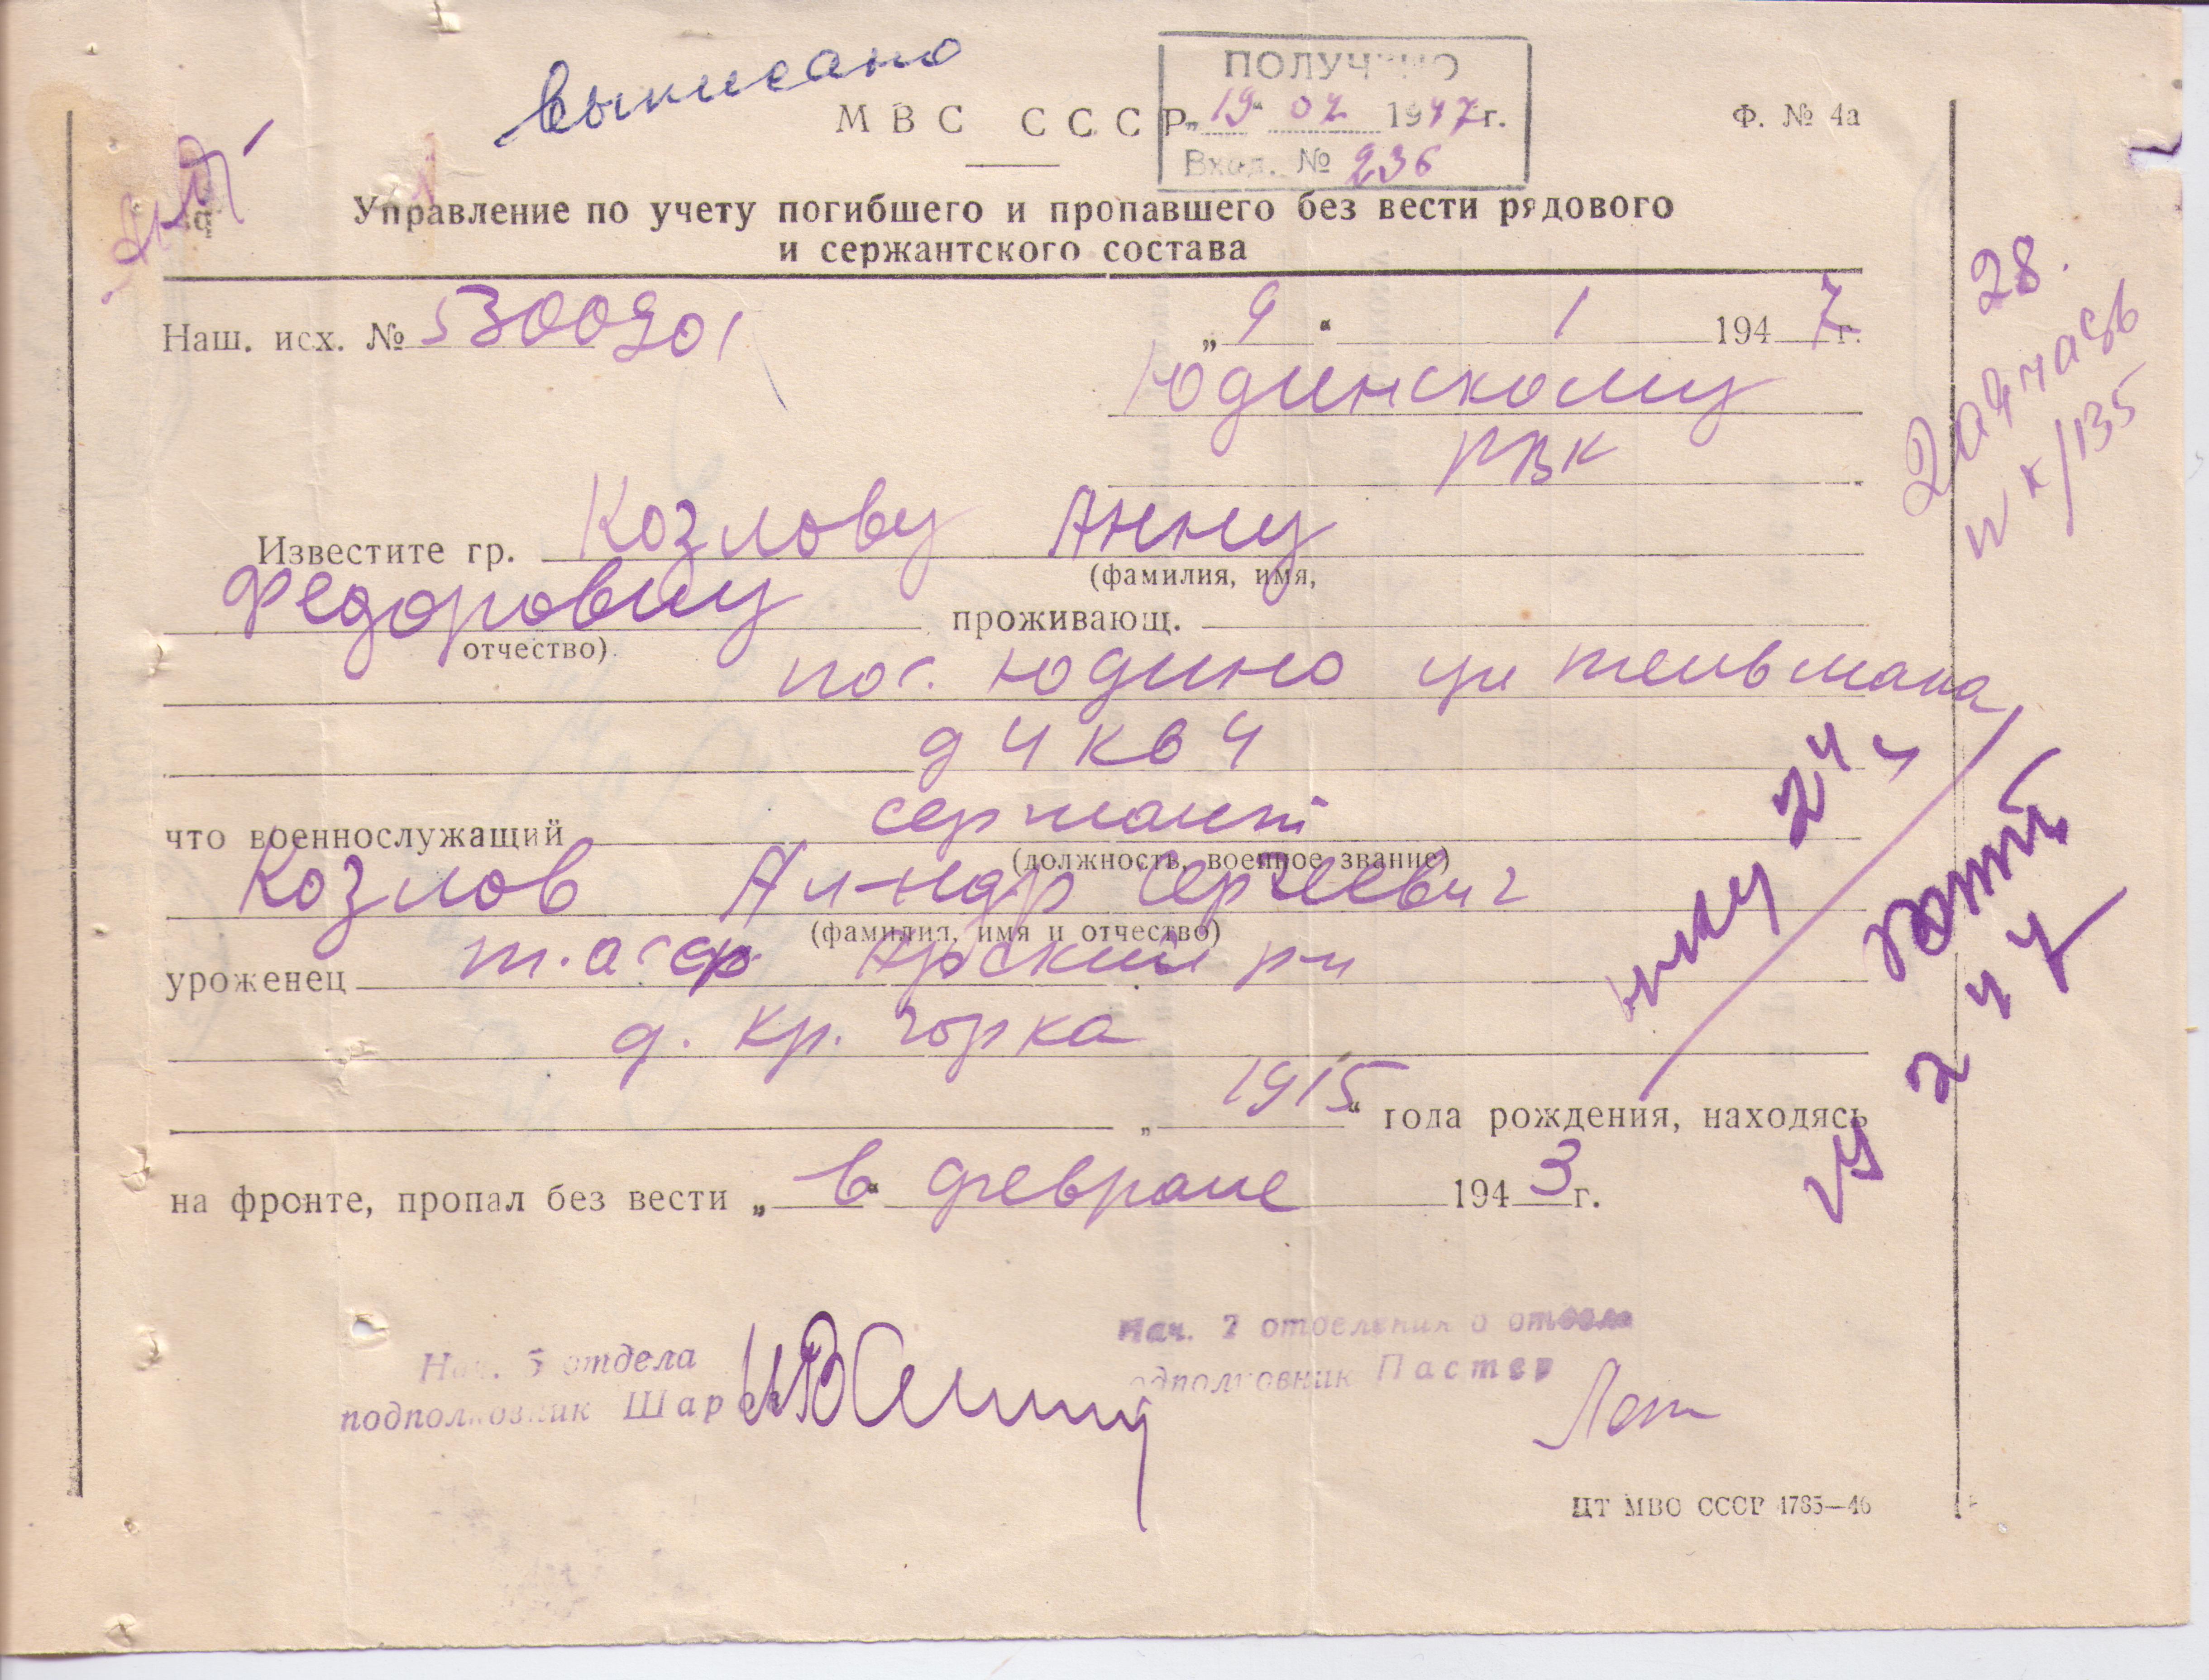 выписано
ПОЛУЧЕНО
МВС СССР
„19“ 02 1947 г.
Ф. № 4а
Вход. № 236
Управление по учету погибшего и пропавшего без вести рядового
и сержантского состава
Наш. исх. № 5300901
„9“ 1 1947 г.
Юдинскому
РВК
28.
Известите гр. Козлову Анну
(фамилия, имя,
Федоровну проживающ.
отчество)
пос. Юдино ул тельмана
д 4 кв 4
что военнослужащий сержант
(должность, военное звание)
Козлов Ал-ндр Сергеевич
(фамилия, имя и отчество)
уроженец т.асср. Арский р-н
д. Кр. горка
„1915“ года рождения, находясь
на фронте, пропал без вести „в“ феврале 1943 г.
Нач. 5 отдела
подполковник Шар
Нач. 2 отделения 5 отдела
подполковник Пастер
ЦТ МВО СССР 4785—46